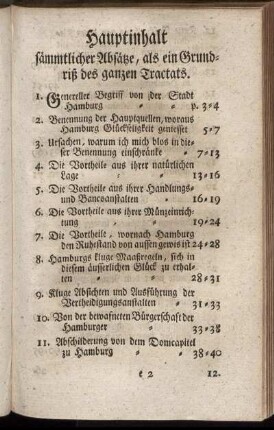 Hauptinhalt
sämmtlicher Absätze, als ein Grund-
riß des ganzen Tractats.
1. Genereller Begriff von der Stadt
Hamburg = = p. 3=4
2. Benennung der Hauptquellen, woraus
Hamburg Glückseligkeit geniesset 5=7
3. Ursachen, warum ich mich blos in die-
ser Benennung einschränke = 7=13
4. Die Vortheile aus ihrer natürlichen
Lage = = 13=16
5. Die Vortheile aus ihrer Handlungs-
und Bancoanstalten = 16=19
6. Die Vortheile aus ihrer Münzeinrich-
tung = = 19=24
7. Die Vortheile, wornach Hamburg
den Ruhestand von aussen gewis ist 24=28
8. Hamburgs kluge Maaßregeln, sich in
diesem äusserlichen Glück zu erhal-
ten = = 28=31
9. Kluge Absichten und Ausführung der
Vertheidigungsanstalten = 31=33
10. Von der bewafneten Bürgerschaft der
Hamburger = = 33=38
11. Abschilderung von dem Domcapitel
zu Hamburg = = 38=40
e 2 12.